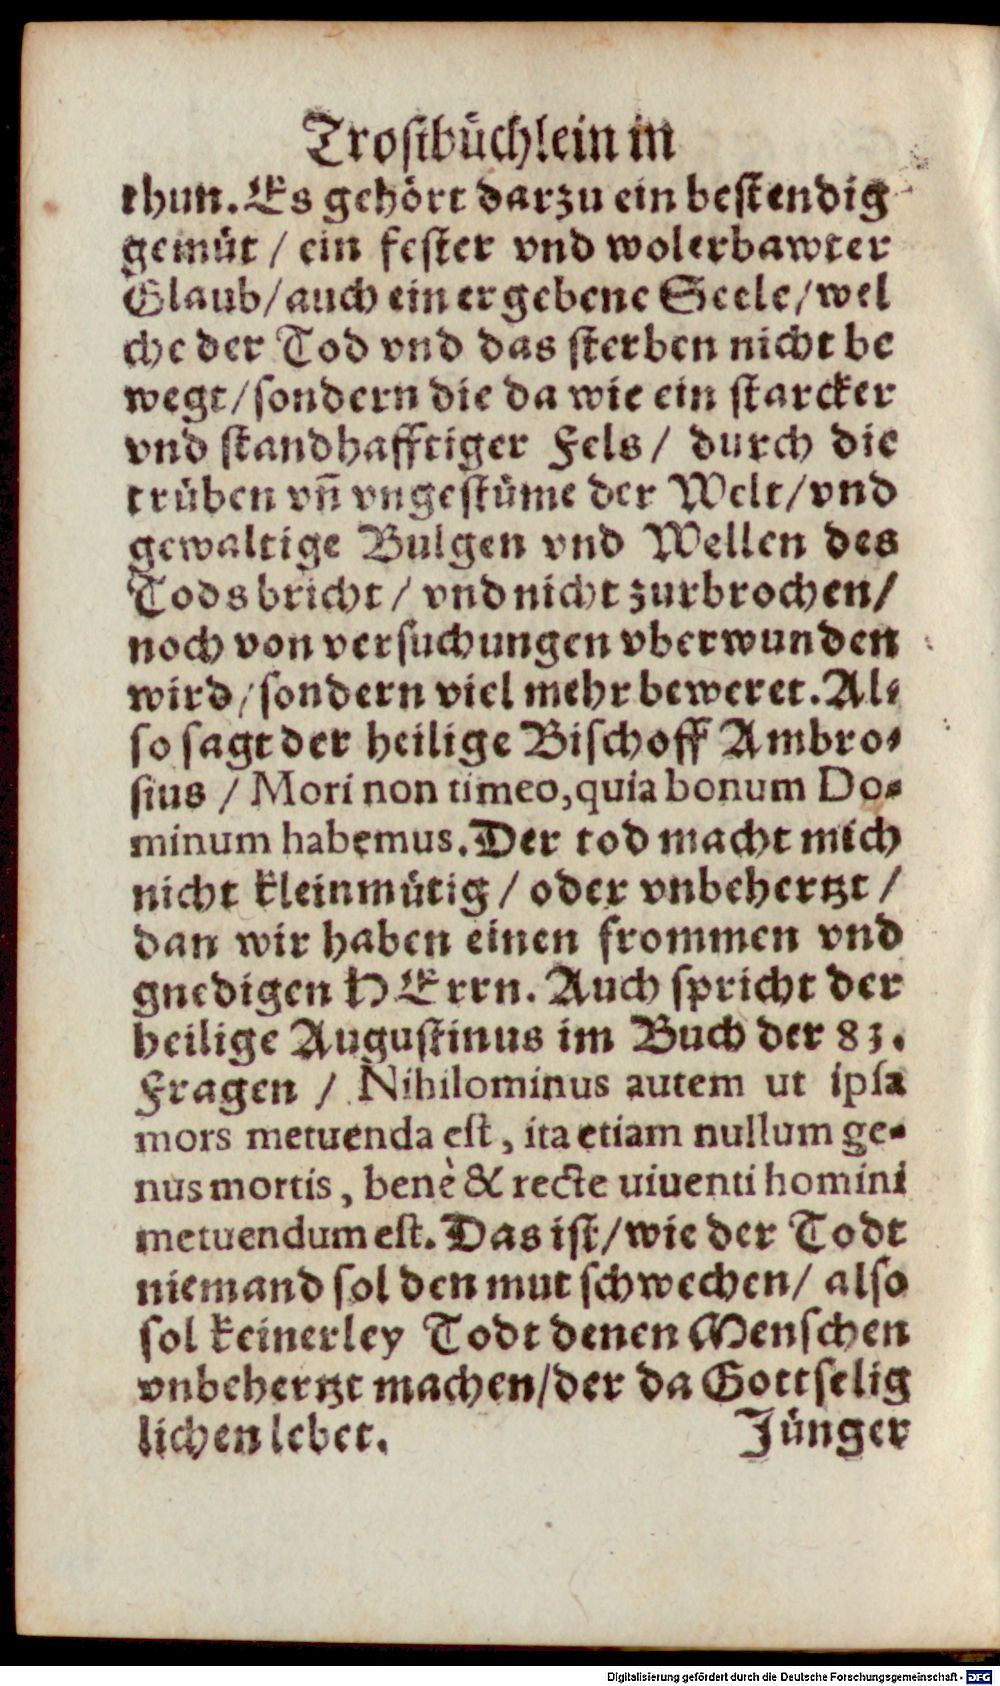 Trostbüchlein in
thun. Es gehört darzu ein bestendig
gemüt / ein fester vnd wolerbawter
Glaub / auch ein ergebene Seele / wel
che der Tod vnd das sterben nicht be
wegt / sondern die da wie ein starcker
vnd standhafftiger Fels / durch die
trüben vñ vngestüme der Welt / vnd
gewaltige Bulgen vnd Wellen des
Tods bricht / vnd nicht zurbrochen /
noch von versuchungen vberwunden
wird / sondern viel mehr beweret. Al-
so sagt der heilige Bischoff Ambro-
sius / Mori non timeo, quia bonum Do-
minum habemus. Der tod macht mich
nicht kleinmütig / oder vnbehertzt /
dan wir haben einen frommen vnd
gnedigen HErrn. Auch spricht der
heilige Augustinus im Buch der 83.
Fragen / Nihilominus autem ut ipsa
mors metuenda est, ita etiam nullum ge-
nus mortis, benè & recte uiuenti homini
metuendum est. Das ist / wie der Todt
niemand sol den mut schwechen / also
sol keinerley Todt denen Menschen
vnbehertzt machen / der da Gottselig
lichen lebet. Jünger
Digitalisierung gefördert durch die Deutsche Forschungsgemeinschaft - DFG